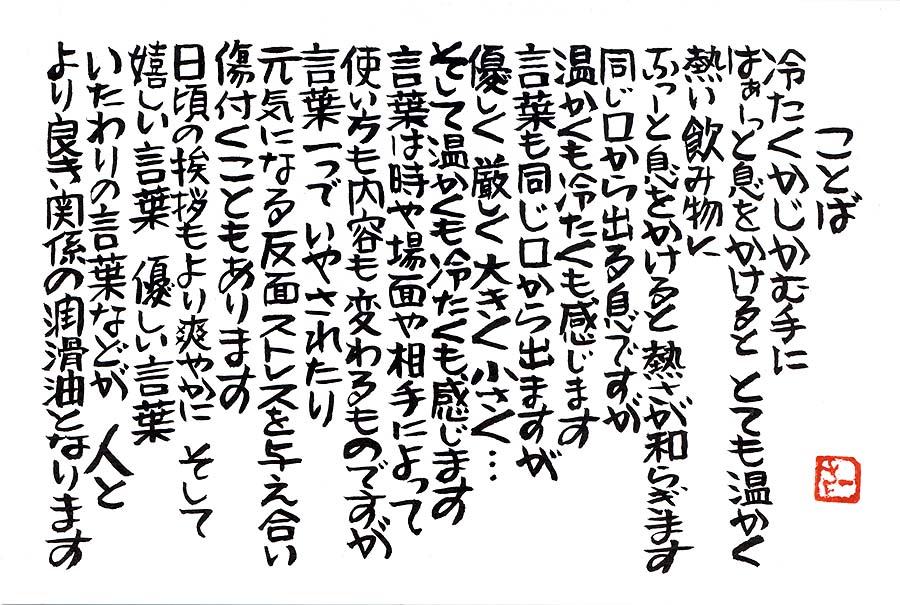 ことば
冷たくかじかむ手に
はぁーっと息をかけると とても温かく
熱い飲み物に
ふぅーと息をかけると 熱さが和らぎます
同じ口から出る息ですが
温かくも冷たくも感じます
言葉も同じ口から出ますが
優しく 厳しく 大きく 小さく…
そして温かくも冷たくも感じます
言葉は時や場面や相手によって
使い方も内容も変わるものですが
言葉一つで いやされたり
元気になる反面ストレスを与え合い
傷付くこともあります
日頃の挨拶もより爽やかに そして
嬉しい言葉 優しい言葉
いたわりの言葉などが 人と
より良き関係の潤滑油となります